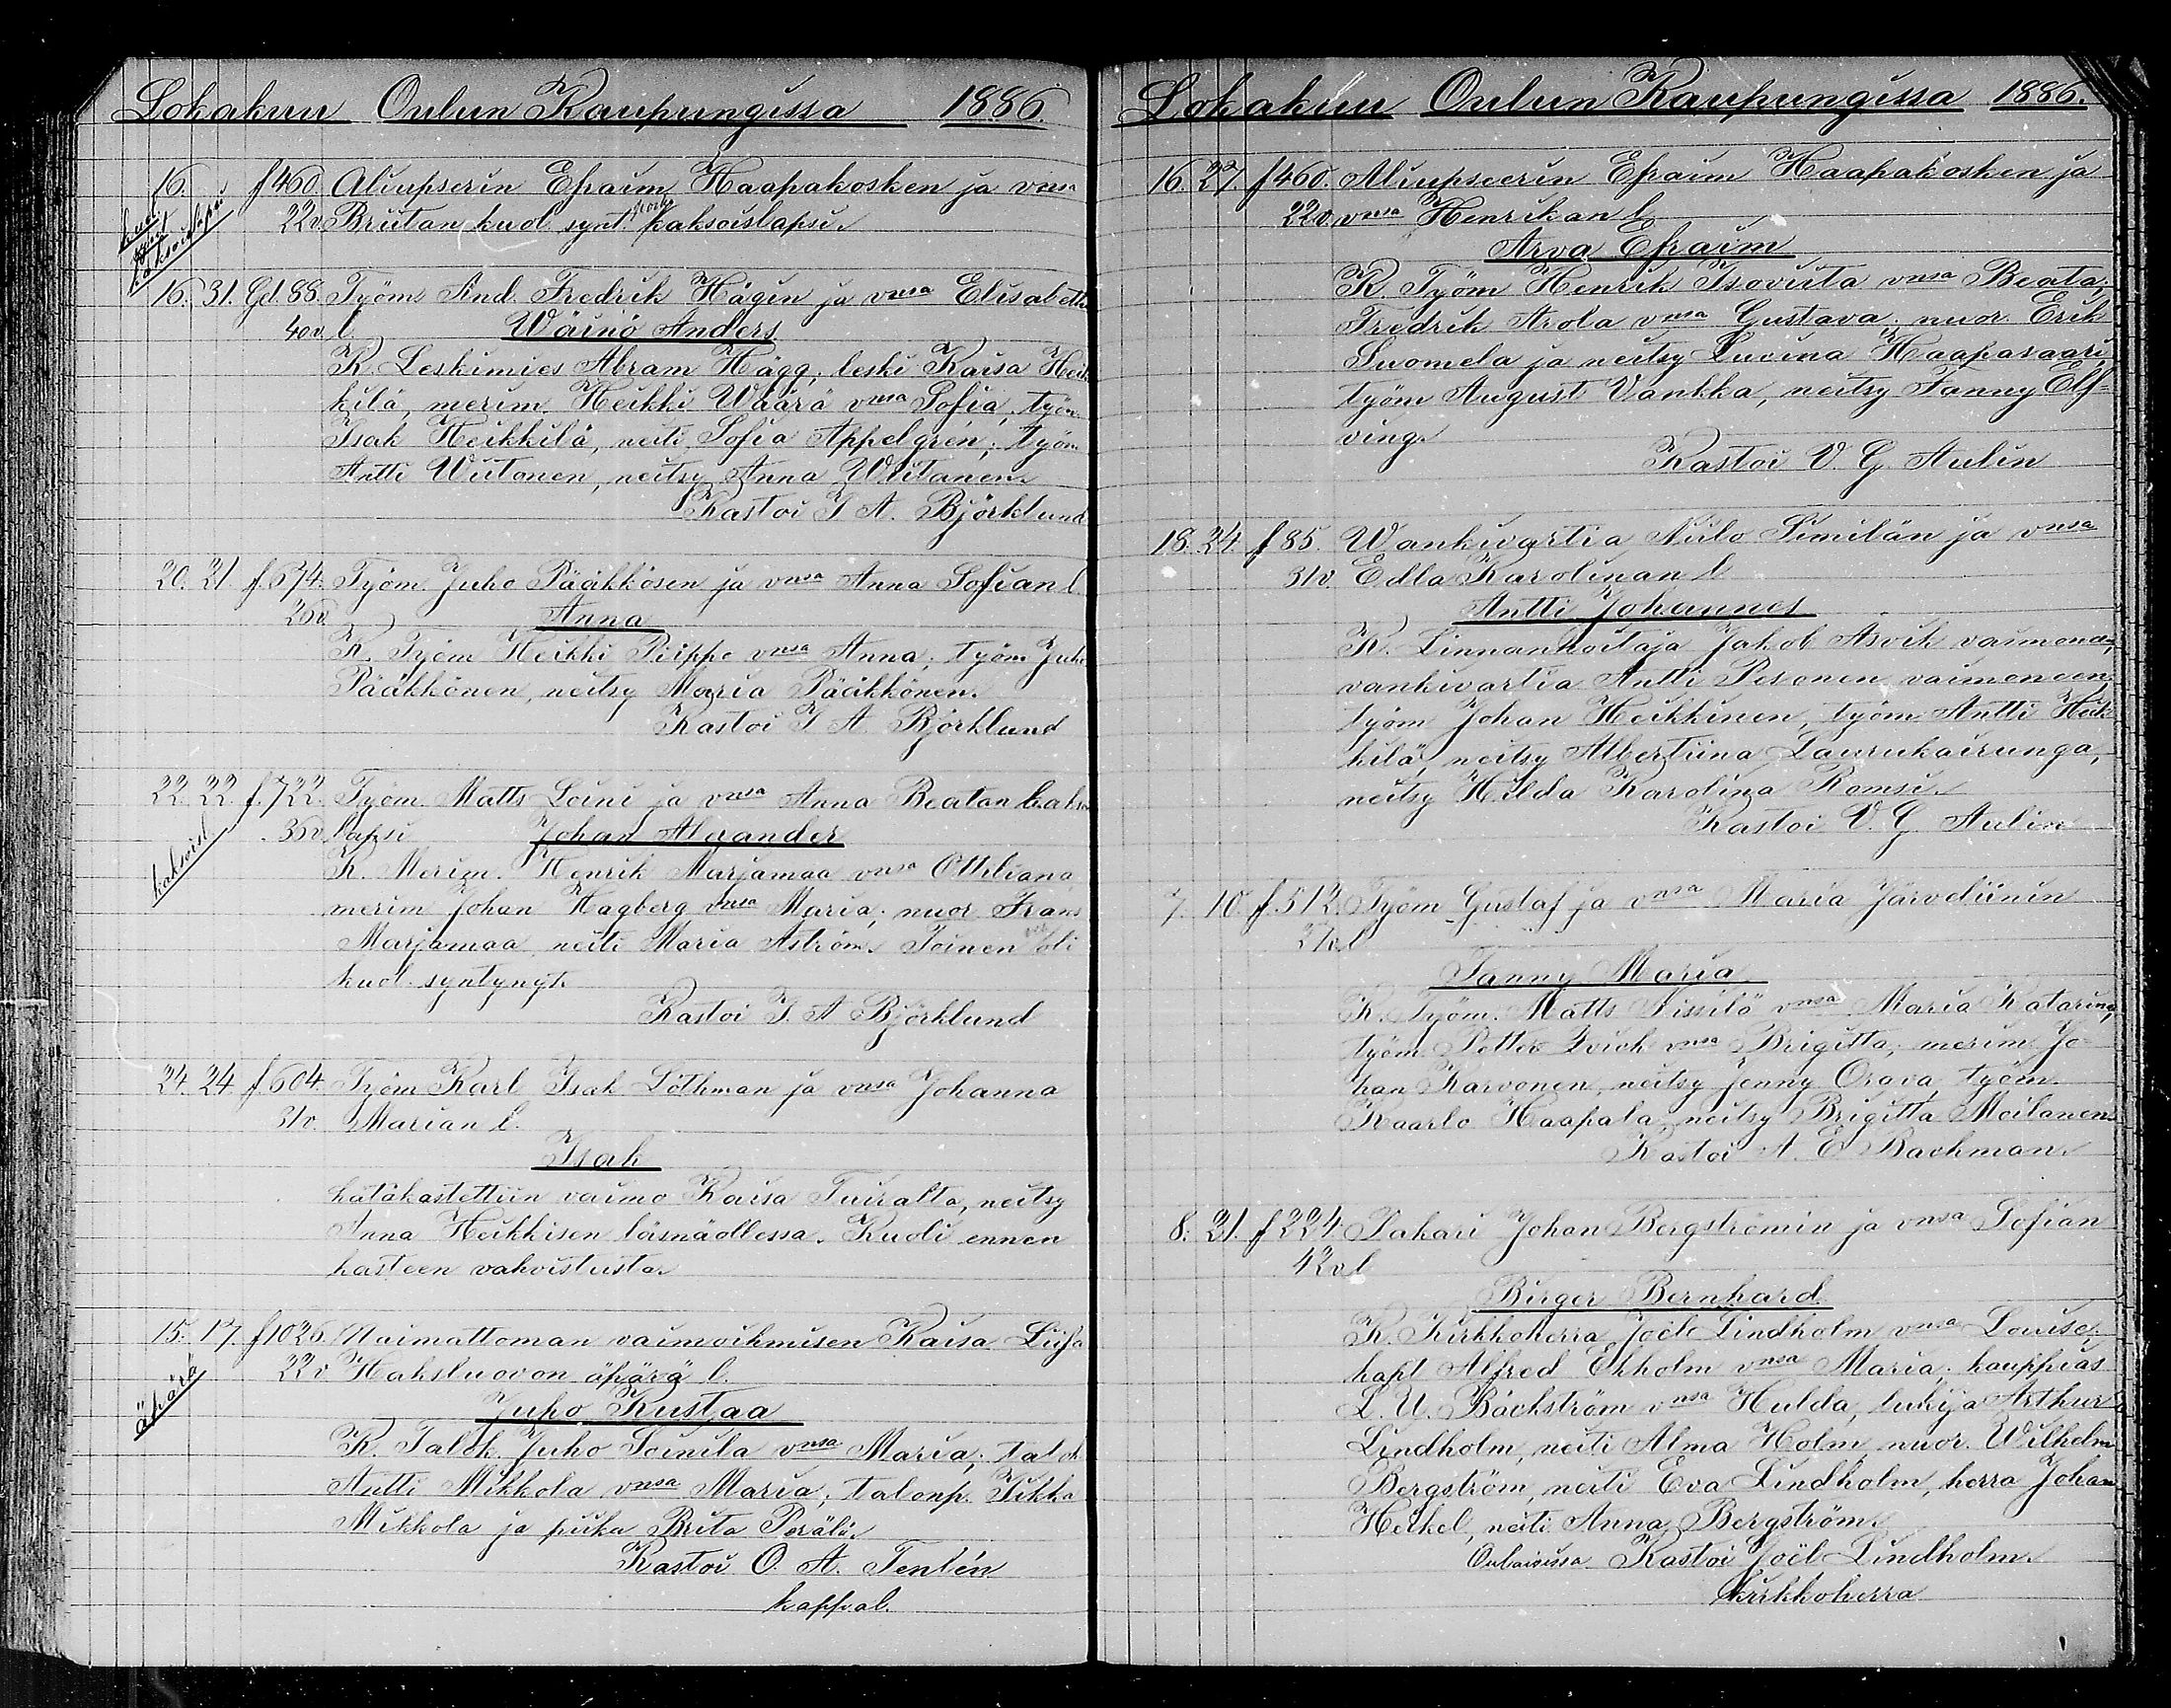 Lokakuu Oulun Kaupungissa 1886.
16. f 460 Aliupserin Efraim Haapakosken ja vnsa
kuol. synt. kaksoislapsi
22 v. Briitan kuol. synt. kaksoislapsi.
16. 31. Gd. 88. Työm. And. Fredrik Hägin ja vnsa Elisabeth
40 v. l. Wäinö Anders
K. Leskimies Abram Hägg, leski Kaisa Heik
kilä, merim. Heikki Wäärä vnsa Sofia, työm.
Isak Heikkilä, neiti Sofia Appelgren; työm.
Antti Wiitanen, neitsy Anna Wiitanen.
Kastoi J A. Björklund
20. 21. f. 674. Työm. Juho Pääkkösen ja vnsa Anna Sofian l.
26 v. Anna
K. Työm Heikki Piippo vnsa Anna; työm Juho
Pääkkönen, neitsy Maria Pääkkönen.
Kastoi J A. Björklund
22. 22. f. 722. Työm. Matts Loini ja vnsa Anna Beatan kaksois
kaksoisl.
36 v. lapsi Johan Alexander
K. Merim. Henrik Marjamaa vnsa Ottiliana
merim Johan Hagberg vnsa Maria; nuor Frans
Marjamaa, neiti Maria Åström. Toinen oli
kuol. syntynyt.
Kastoi J. A Björklund
24. 24. f 604. Työm Karl Isak Löthman ja vnsa Johanna
31 v. Marian l.
Isak
hätäkastettiin vaimo Kaisa Tuiralta, neitsy
Anna Heikkisen läsnäollessa. Kuoli ennen
kasteen vahvistusta.
15. 17. f 1026. Naimattoman vaimoihmisen Kaisa Liisa
äpärä
22 v Hakstuovon äpärä l.
Juho Kustaa
K. Talok. Juho Soinila vnsa Maria; talok
Antti Mikkola vnsa Maria; talonp. Pikka
Mikkola ja piika Brita Perälä.
Kastoi O. A. Tenlén
kappal.
Lokakuu Oulun Kaupungissa 1886.
16. 27. f 460. Aliupseerin Efraim Haapakosken ja
22 v. vnsa Henrikan l.
Arva Efraim
K. Työm Henrik Isoviita vnsa Beata;
Fredrik Arola vnsa Gustava; nuor. Erik
Suomela ja neitsy Lucina Haapasaari,
työm August Vankka, neitsy Fanny Elf-
ving.
Kastoi V. G. Aulin
18. 24. f 85. Wankivartia Niilo Similän ja vnsa
31 v. Edla Karolinan l.
Antti Johannes
K. Linnanhoitaja Jakob Asvik vaimoneen,
vankivartia Antti Pesonen vaimoneen
työm Johan Heikkinen, työm Antti Heik
kilä, neitsy Albertiina Laurukairunga,
neitsy Hilda Karolina Ramsi.
Kastoi V. G. Aulin
7. 10. f. 512. Työm Gustaf ja vnsa Maria Järveliinin
37 v. l
Fanny Maria
K. Työm. Matts Nissilä vnsa Maria Katarina,
työm. Petter Zvich vnsa Brigitta, merim. Jo-
han Karvonen, neitsy Jenny Orava, työm.
Kaarlo Haapala, neitsy Brigitta Moilanen.
Kastoi A. E Bachman.
8. 31. f 224. Sakari Johan Bergströmin ja vnsa Sofian
42 v. l
Birger Bernhard
K. Kirkkoherra Joël Lindholm vnsa Louise,
kapt Alfred Ekholm vnsa Maria, kauppias
L. U. Bäckström vnsa Hulda, lukija Arthur
Lindholm, neiti Alma Holm, nuor. Wilhelm
Bergström, neiti Eva Lindholm, herra Johan
Heikel, neiti Anna Bergström.
Oulaisissa Kastoi Joël Lindholm.
kirkkoherra